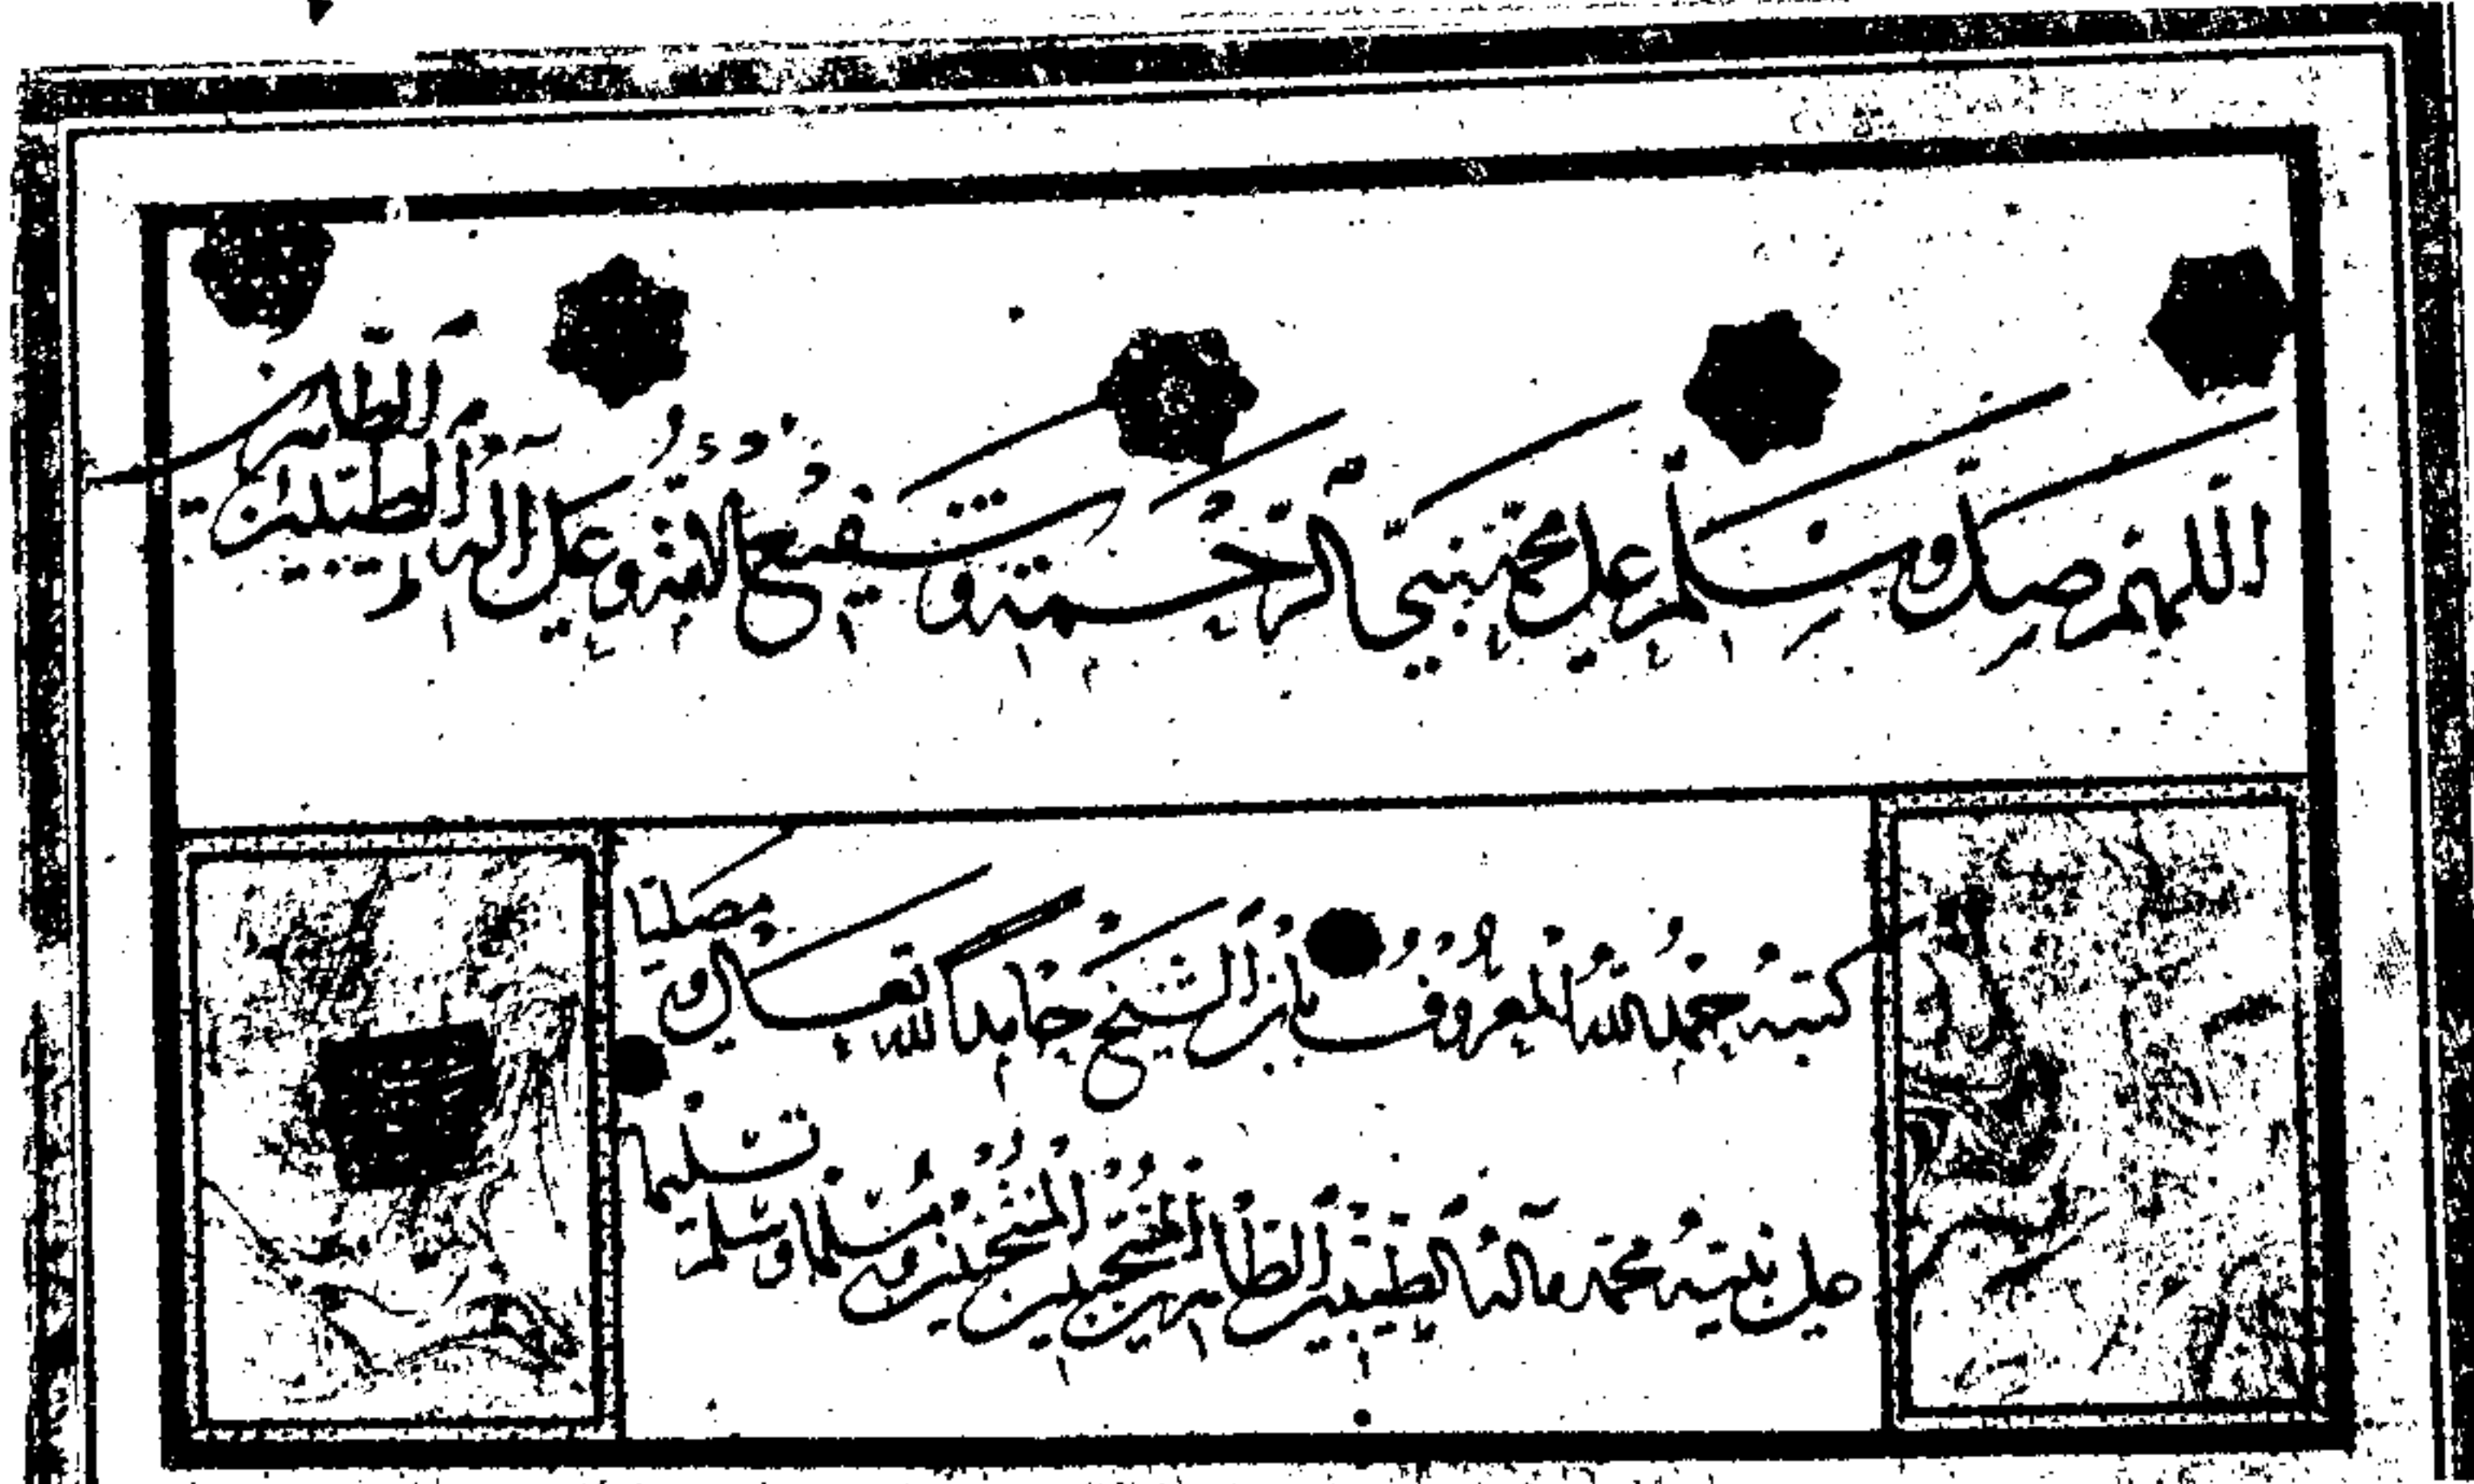 اللهم صل وسلم على محمد نبي الرحمة وشفيع الامة وعلى آله الطيبين الطاهرين
كتبه حمد الله المعروف بابن الشيخ حامدا لله تعالى ومصليا
على نبيه محمد وآله الطيبين الطاهرين ومسلما وسلم تسليما